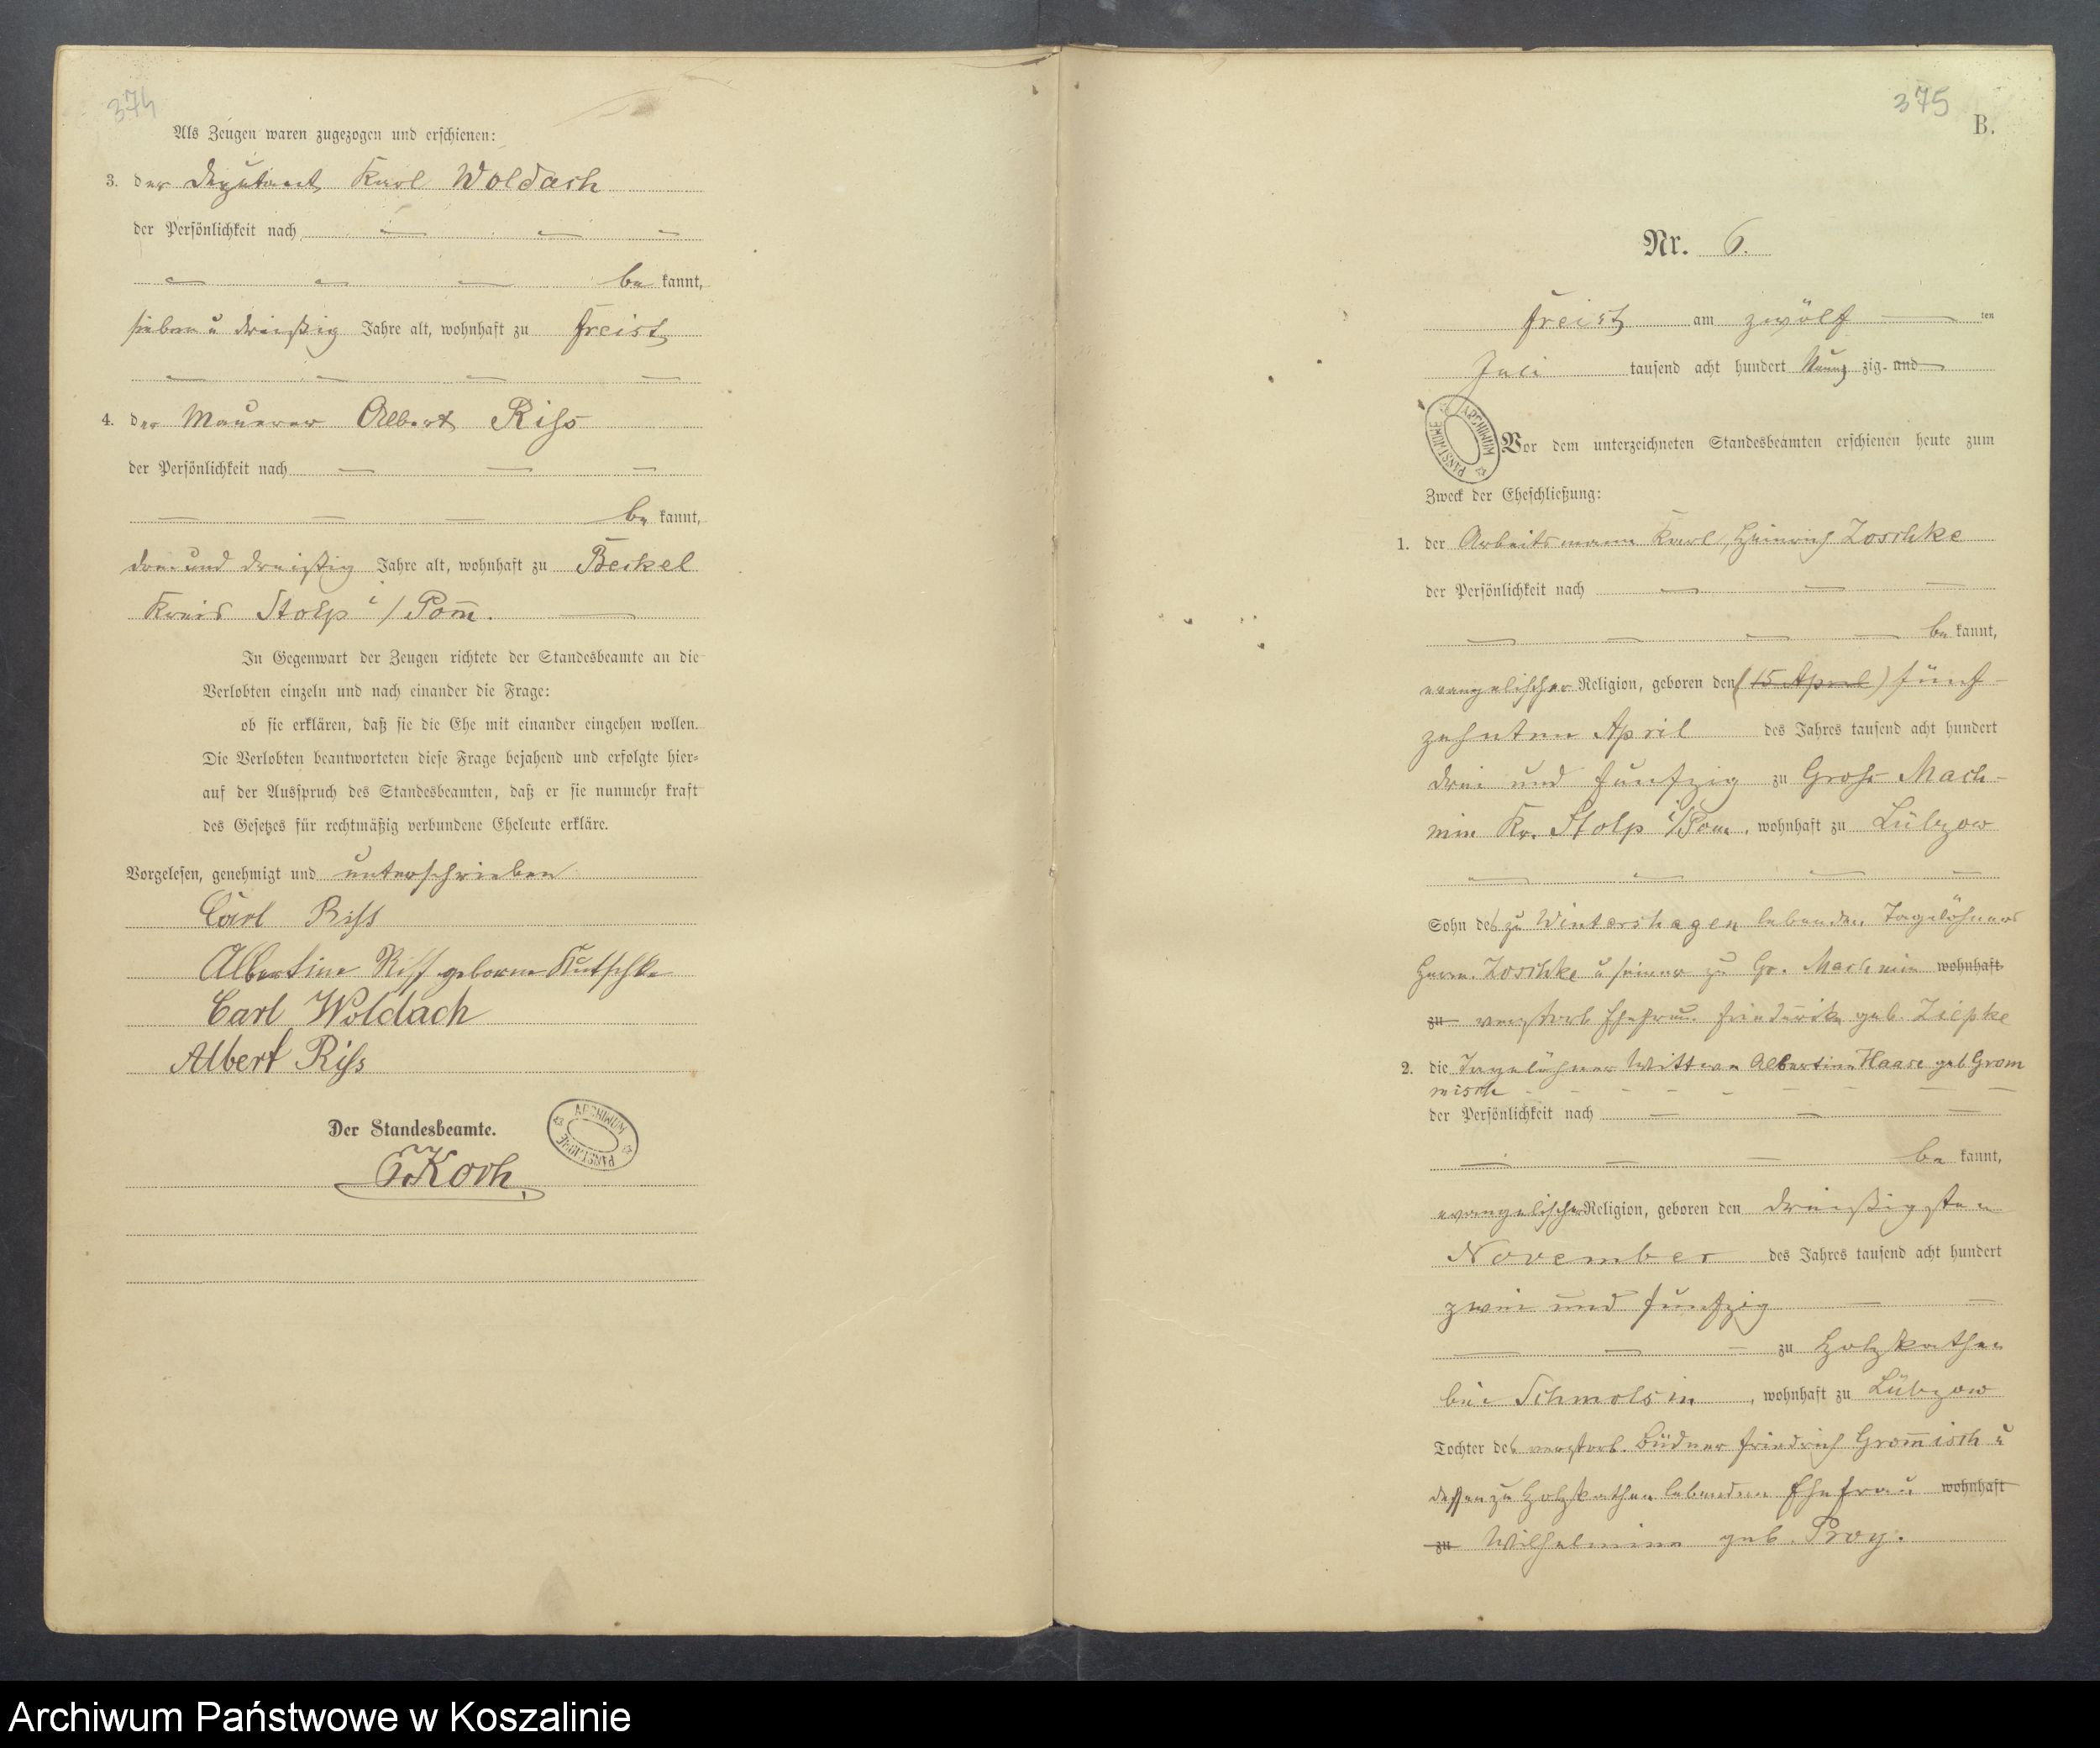 374
Als Zeugen waren zugezogen und erschienen:
3. der Deputant Karl Woldach
der Persönlichkeit nach — — —
— — — be kannt,
sieben u dreißig Jahre alt, wohnhaft zu Freist
— — — —
4. der Maurer Albert Riss
der Persönlichkeit nach — — —
— — — be kannt,
drei und dreißig Jahre alt, wohnhaft zu Beckel
Kreis Stolp i/Pom. —
In Gegenwart der Zeugen richtete der Standesbeamte an die
Verlobten einzeln und nach einander die Frage:
ob sie erklären, daß sie die Ehe mit einander eingehen wollen.
Die Verlobten beantworteten diese Frage bejahend und erfolgte hier-
auf der Ausspruch des Standesbeamten, daß er sie nunmehr kraft
des Gesetzes für rechtmäßig verbundene Eheleute erkläre.
Vorgelesen, genehmigt und unterschrieben
Carl Riss
Albertine Riss geborne Kutschke
Carl Woldach
Albert Riss
Der Standesbeamte.
ARCHIWUM PAŃSTWOWE
Koch
375
B.
Nr. 6.
Freist am zwölf — ten
Juli tausend acht hundert Neun zig und —
ARCHIWUM PAŃSTWOWE
Vor dem unterzeichneten Standesbeamten erschienen heute zum
Zweck der Eheschließung:
1. der Arbeitsmann Karl Heinrich Zoschke
der Persönlichkeit nach — — —
— — — — be kannt,
evangelischer Religion, geboren den (15 April) fünf-
zehnten April des Jahres tausend acht hundert
drei und fünfzig zu Gross Mach-
min Kr. Stolp i/Pom, wohnhaft zu Lübzow
— — — —
Sohn des zu Wintershagen lebenden Tagelöhners
Herm. Zoschke u seiner zu Gr. Machmin wohnhaft
zu verstorb Ehefrau Friederike geb. Ziepke
2. die Tagelöhner Wittwe Albertine Haase geb Grom
misch — — — — — — —
der Persönlichkeit nach — — —
— — — be kannt,
evangelischer Religion, geboren den dreißigsten
November des Jahres tausend acht hundert
zwei und fünfzig — —
— — — zu Holzkathen
bei Schmolsin, wohnhaft zu Lübzow
Tochter des verstorb. Büdner Friedrich Grommisch u
dessen zu Holzkathen lebenden Ehefrau wohnhaft
zu Wilhelmine geb. Proy.
Archiwum Państwowe w Koszalinie